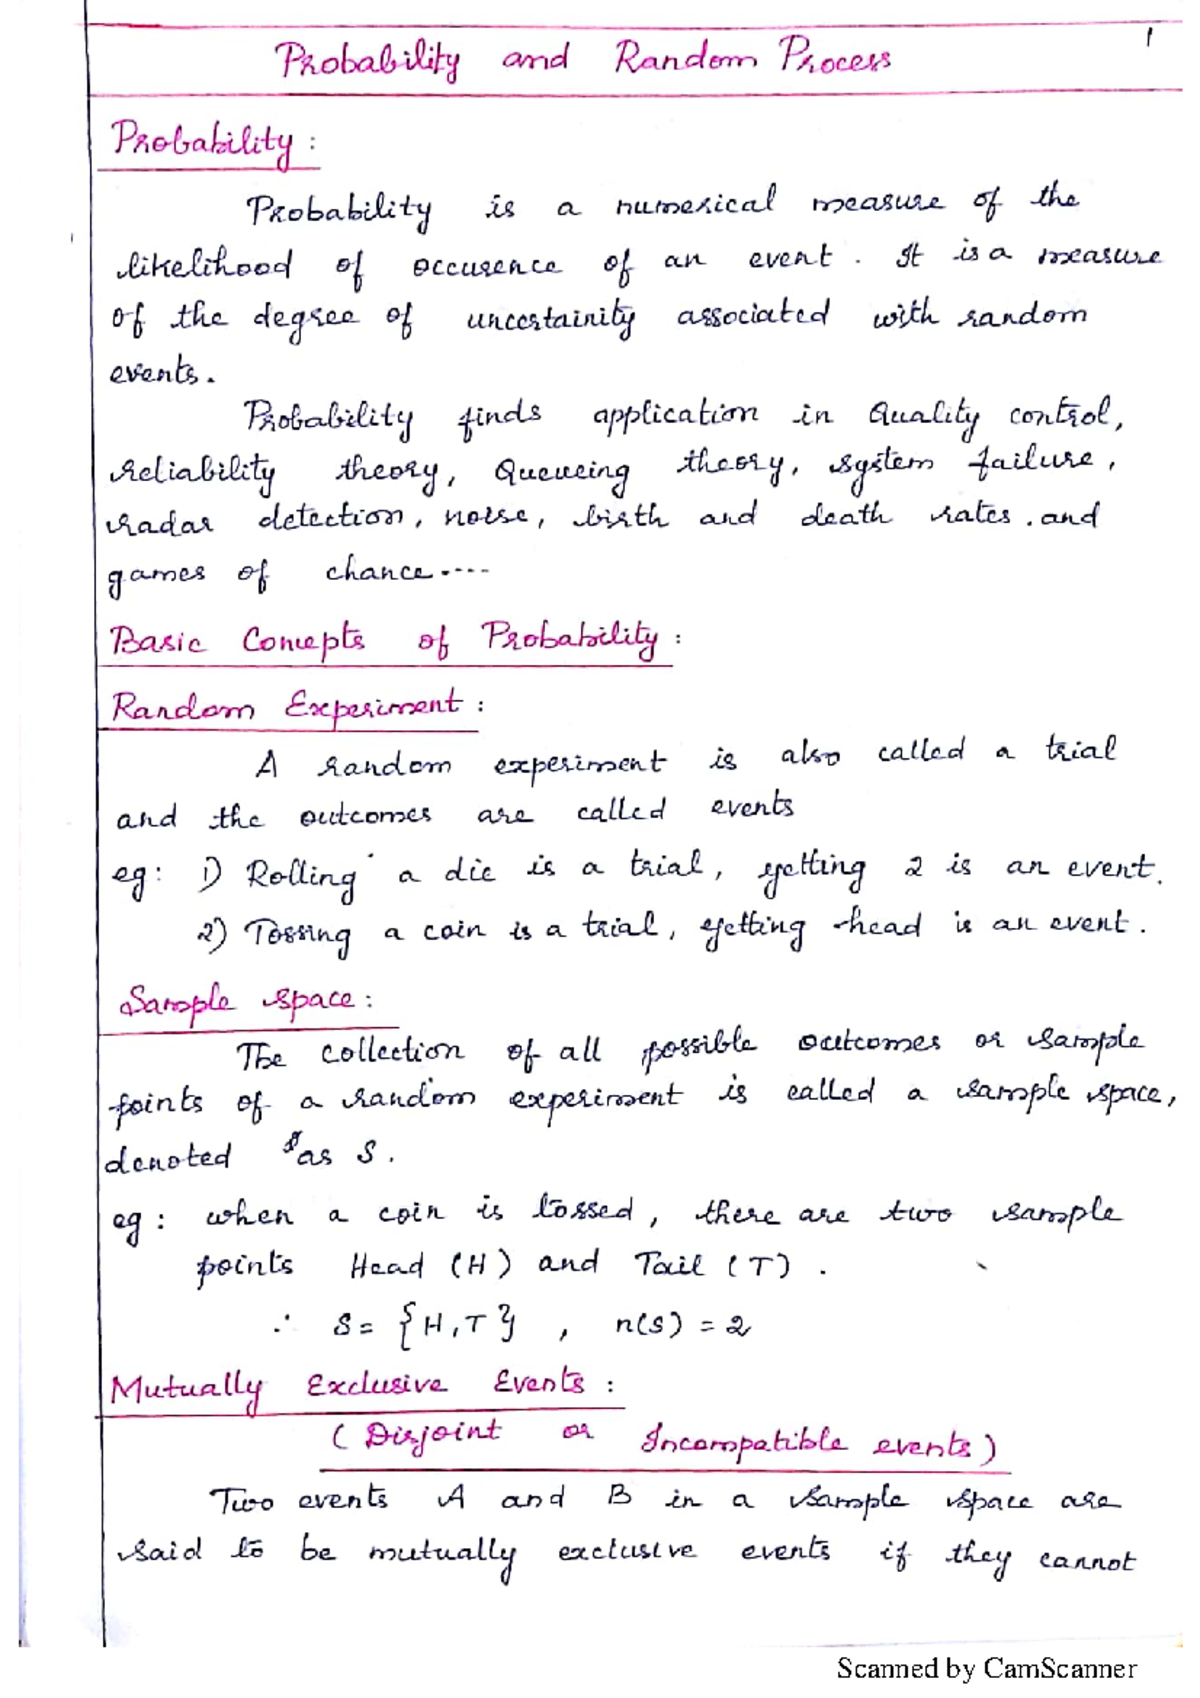 1
Probability and Random Process
Probability :
Probability is a numerical measure of the
likelihood of occurence of an event. It is a measure
of the degree of uncertainity associated with random
events.
Probability finds application in Quality control,
reliability theory, Queueing theory, system failure,
radar detection, noise, birth and death rates. and
games of chance....
Basic Concepts of Probability :
Random Experiment :
A random experiment is also called a trial
and the outcomes are called events
eg: 1) Rolling a die is a trial, getting 2 is an event.
2) Tossing a coin is a trial, getting head is an event.
Sample space :
The collection of all possible outcomes or sample
points of a random experiment is called a sample space,
denoted as S.
eg: when a coin is tossed, there are two sample
points Head (H) and Tail (T).
∴ S = {H,T} , n(S) = 2
Mutually Exclusive Events :
(Disjoint or Incompatible events)
Two events A and B in a sample space are
said to be mutually exclusive events if they cannot
Scanned by CamScanner